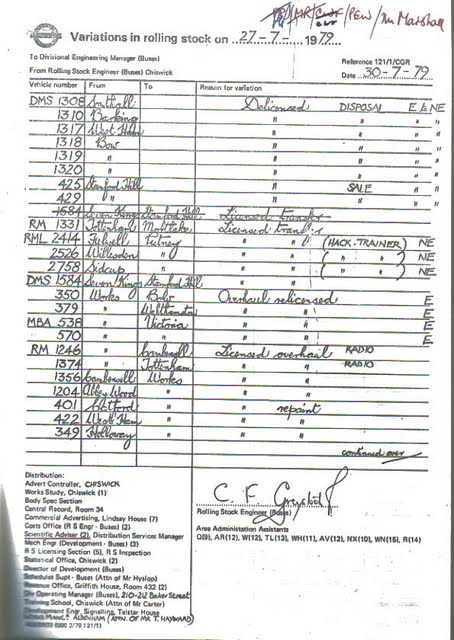 /MR/ /PEW/Mr Marshall
OUT
Variations in rolling stock on 27-7- 1979
To Divisional Engineering Manager (Buses)
From Rolling Stock Engineer (Buses) Chiswick
Reference 121/1/CGR
Date 30-7-79
Vehicle number From To Reason for variation
DMS 1308 Southall Delicensed DISPOSAL E & NE
1310 Barking " " " "
1317 West Ham " " " "
1318 Bow " " " "
1319 " " " " "
1320 " " " " "
425 Stamford Hill " SALE " "
429 " " " " " "
1584 Seven Kings Stamford Hill Licensed transfer
RM 1331 Tottenham Mortlake Licensed transfer
RML 2414 Fulwell Putney " " (HACK-TRAINER) NE
2526 Willesden " " " ( " " ) NE
2758 Sidcup " " " ( " " ) NE
DMS 1584 Seven Kings Stamford Hill " "
350 Works Bow Overhaul relicensed E
379 " Walthamstow " " E
MBA 538 " Victoria " " E
570 " " " " E
RM 1246 " Camberwell Licensed overhaul RADIO
1374 " Tottenham " " RADIO
1356 Camberwell Works " "
1204 Abbey Wood " " "
401 Catford " " repaint
422 West Ham " " "
349 Holloway " " "
continued over
Distribution:
Advert Controller, CHISWICK
Works Study, Chiswick (1)
Body Spec Section
Central Record, Room 34
Commercial Advertising, Lindsay House (7)
Costs Office (R S Engr - Buses) (2)
Scientific Adviser (2), Distribution Services Manager
Mech Engr (Development - Buses) (3)
R S Licensing Section (5), R S Inspection
Statistical Office, Chiswick (2)
Director of Development (Buses)
Schedules Supt - Buses (Attn of Mr Hyslop)
Revenue Office, Griffith House, Room 432 (2)
Operating Manager (Buses), 210-212 Baker Street
Training School, Chiswick (Attn of Mr Carter)
Development Engr, Signalling, Telstar House
WORKS MANGR. ALDENHAM (ATTN. OF MR T. HAYWARD)
2/79 121/1)
C. F.
Rolling Stock Engineer (Buses)
Area Administration Assistants
Q(9), AR(12), W(12), TL(13), WH(11), AV(12), NX(10), WN(15), R(14)